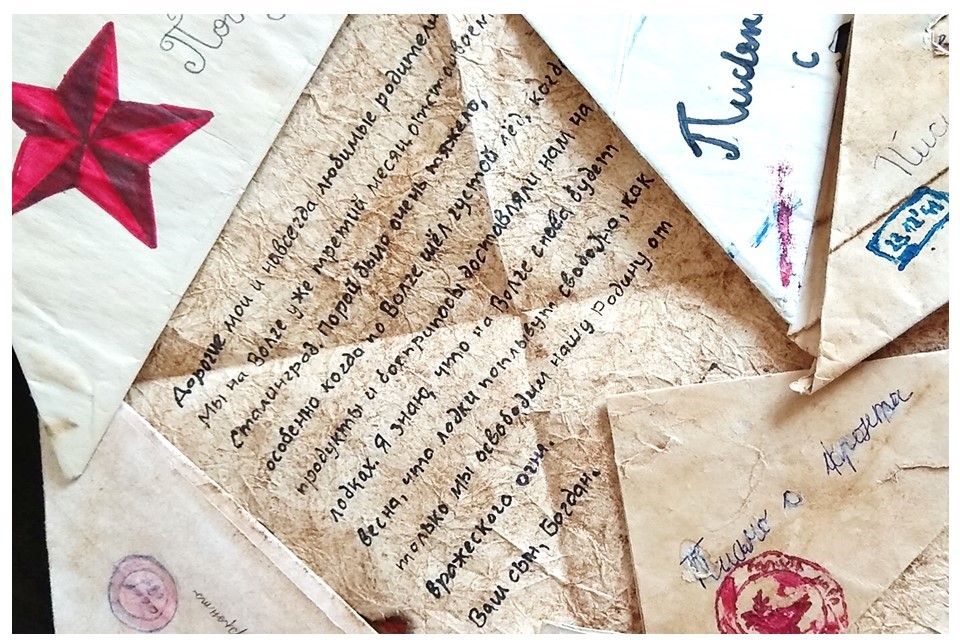 Дорогие мои и навсегда любимые родители
Мы на Волге уже третий месяц отстаиваем
Сталинград. Порой было очень тяжело,
особенно когда по Волге шёл густой лёд, когда
продукты и боеприпасы доставляли нам на
лодках. Я знаю, что на Волге снова будет
весна, что лодки поплывут свободно, как
только мы освободим нашу родину от
вражеского огня.
Ваш сын, Богдан.
с
23 12 41
Письмо с
фронта